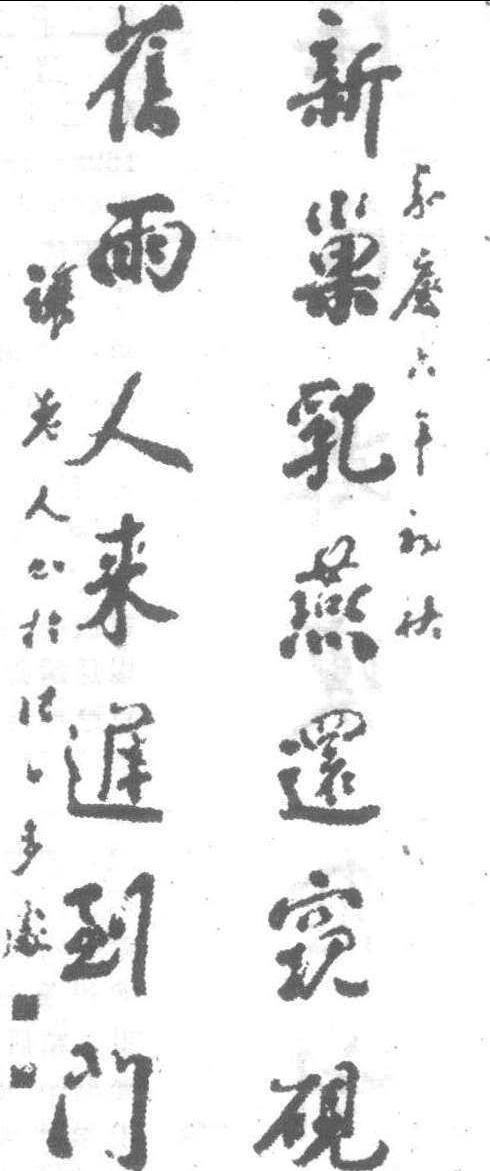 嘉慶六年初秋
新巢乳燕還窺硯
舊雨人来遲到門
老人書於